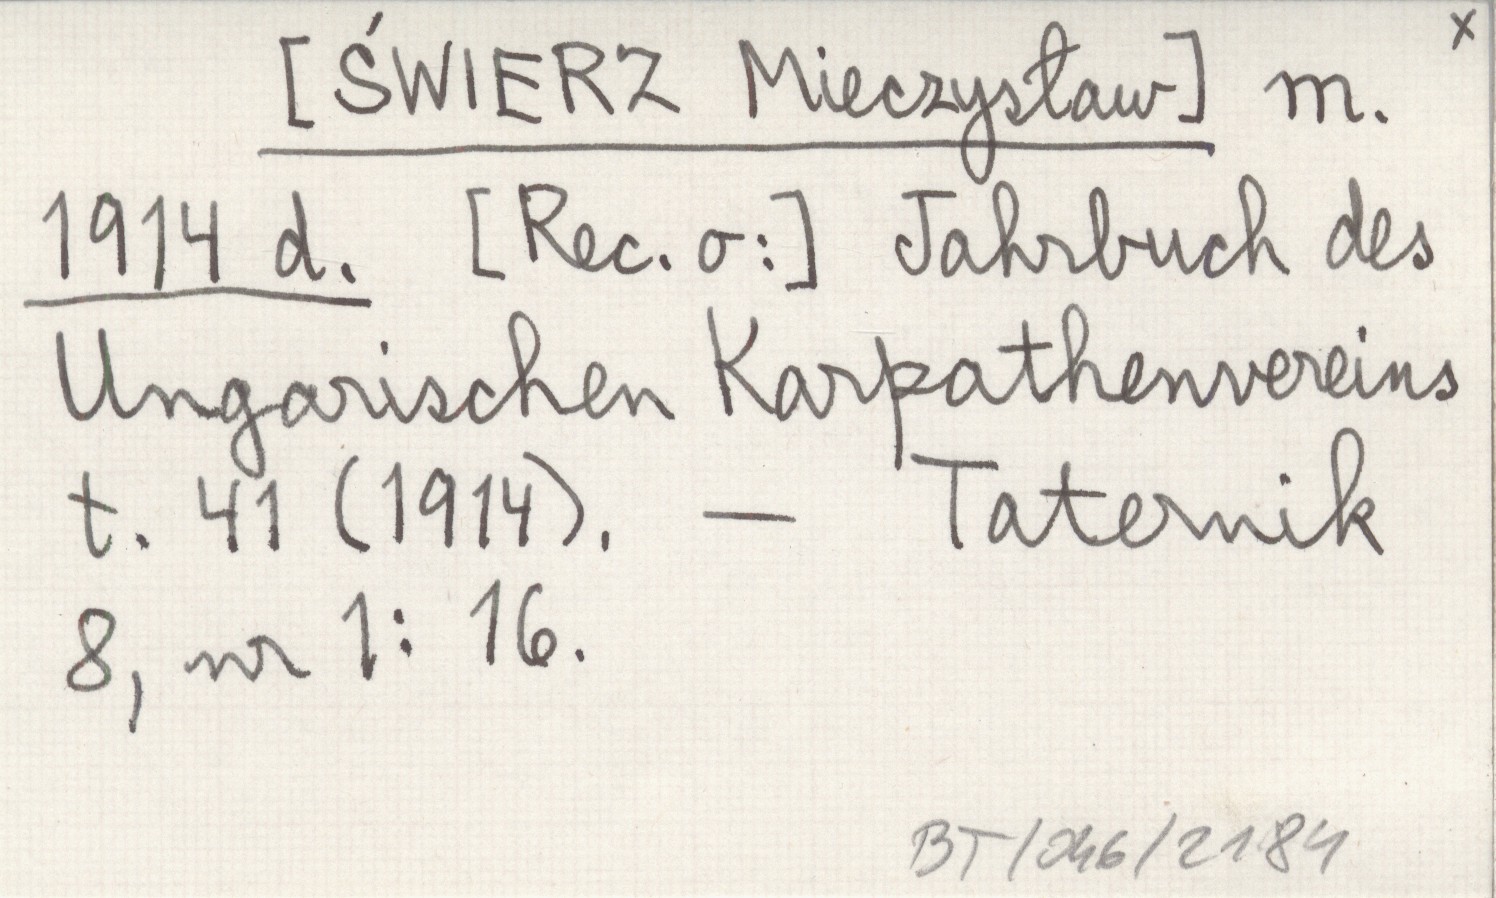 x
[ŚWIERZ Mieczysław] m.
1914 d. [Rec. o:] Jahrbuch des
Ungarischen Karpathenvereins
t. 41 (1914). — Taternik
8, nr 1: 16.
BT/046/2184